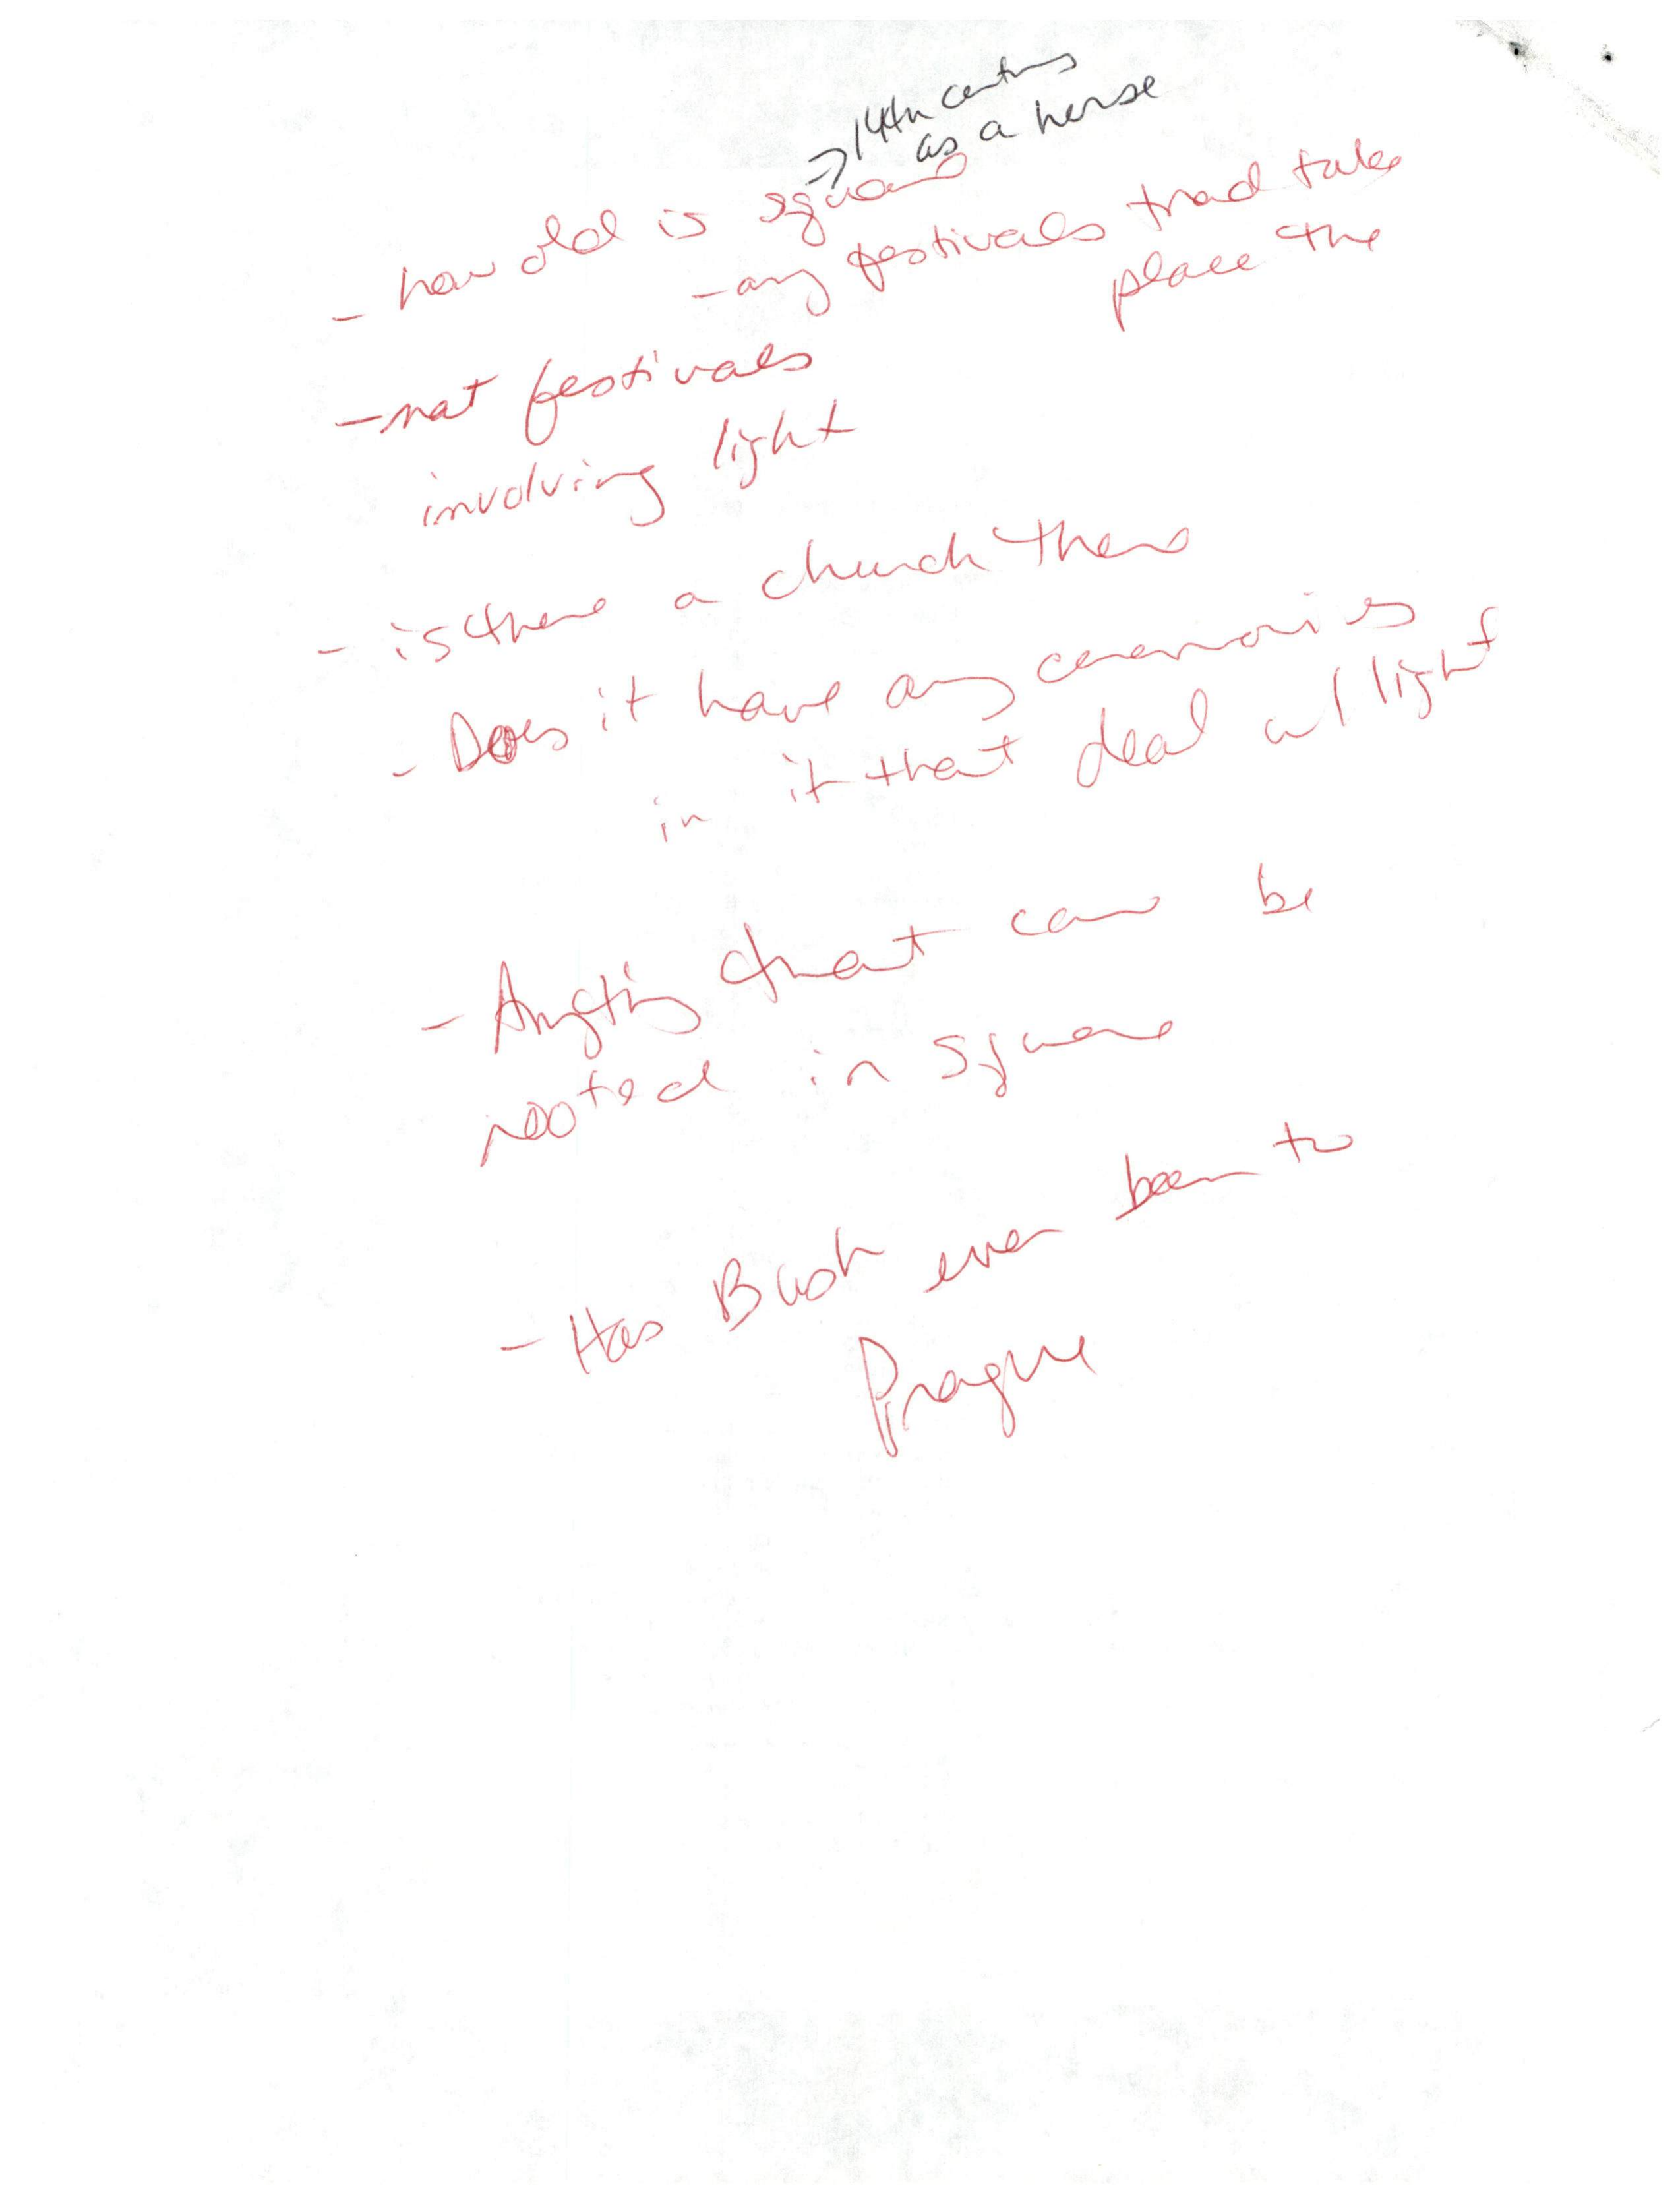 → 14th century
as a horse
- how old is square
- any festivals trad take
place the
- nat festivals
involving light
- is there a church there
- Does it have any ceremonies
in it that deal w/ light
- Anything that can be
rooted in square
- Has Bush ever been to
Prague